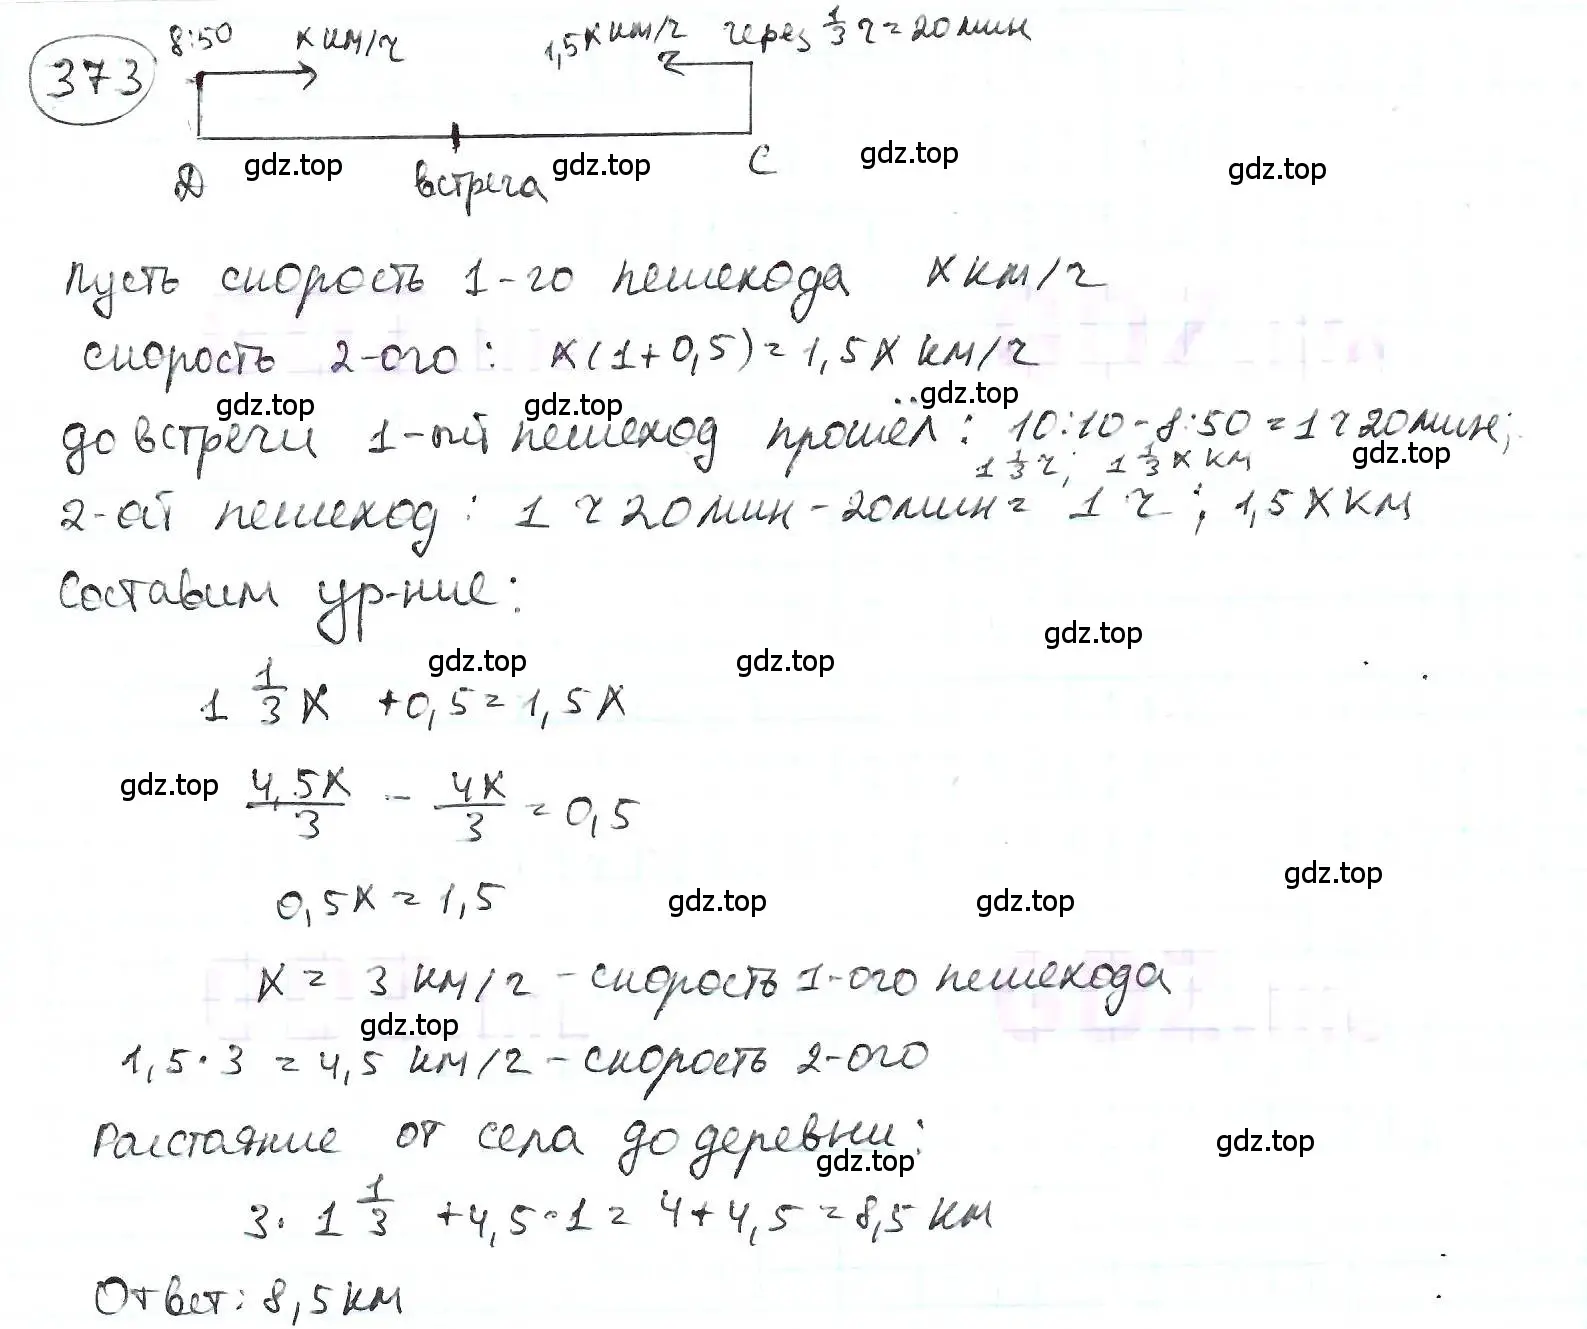 373
8:50 x км/ч 1,5x км/ч через 1/3 ч = 20 мин
Д встреча С
gdz.top gdz.top gdz.top gdz.top
Пусть скорость 1-го пешехода x км/ч
скорость 2-ого: x(1+0,5)=1,5x км/ч
gdz.top gdz.top gdz.top
до встречи 1-ый пешеход прошёл: 10:10-8:50=1ч 20 мин;
1 1/3 ч; 1 1/3 x км gdz.top
2-ой пешеход: 1 ч 20 мин - 20 мин = 1 ч; 1,5x км
Составим ур-ние:
gdz.top gdz.top gdz.top
1 1/3 x + 0,5 = 1,5x
gdz.top 4,5x/3 - 4x/3 = 0,5
0,5x = 1,5 gdz.top gdz.top gdz.top
x = 3 км/ч - скорость 1-ого пешехода
gdz.top
1,5·3 = 4,5 км/ч - скорость 2-ого
Расстояние от села до деревни:
gdz.top gdz.top
3·1 1/3 + 4,5·1 = 4+4,5 = 8,5 км
Ответ: 8,5 км